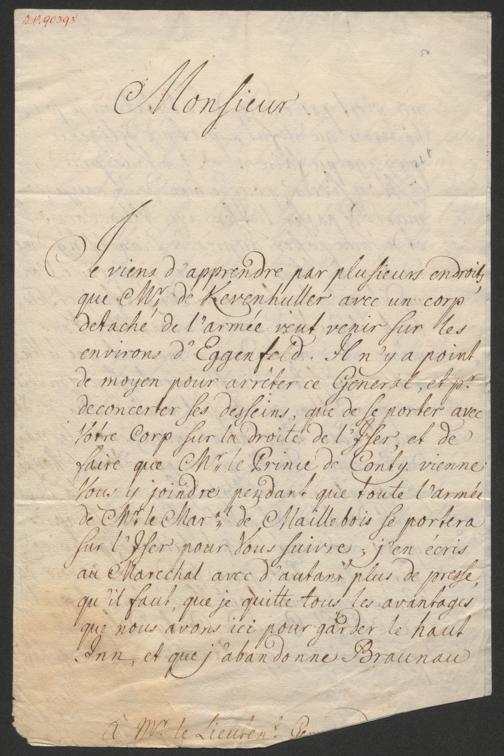 B.P. 9039
Monsieur
Je viens d'apprendre par plusieurs endroits
que Mr. de Kevenhuller avec un corp
detaché de l'armée veut venir sur les
environs d'Eggenfeld. Il n'y a point
de moyen pour arréter ce General, et pr.
deconcerter ses desseins, que de se porter avec
Votre Corp sur la droite de l'Iser, et de
faire que Mr. le Prince de Conty vienne
Vous y joindre pendant que toute l'armée
de Mr. le Mar.al de Maillebois se portera
sur l'Iser pour Vous suivre; j'en écris
au Marechal avec d'autant plus de presse,
qu'il faut, que je quitte tous les avantages
que nous avons ici pour garder le haut
Inn, et que j'abandonne Braunau
A Mr. le Lieuten.t